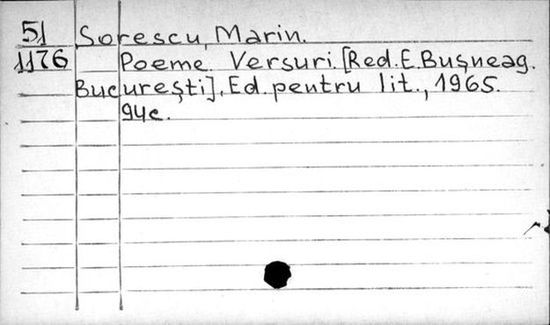 51 Sorescu, Marin.
1176 Poeme. Versuri. [Red. E. Bușneag.
București], Ed. pentru lit., 1965.
94c.